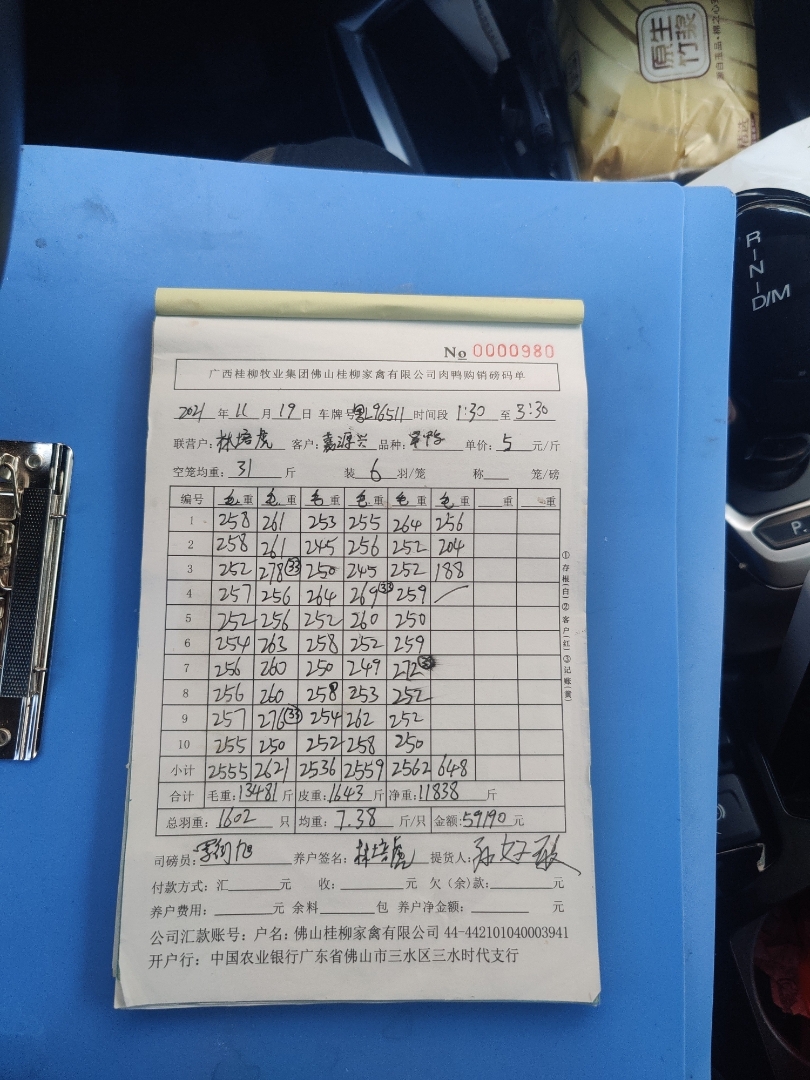 原生
竹浆
R
N
D/M
P
No 0000980
广西桂柳牧业集团佛山桂柳家禽有限公司肉鸭购销磅码单
2021 年 11 月 19 日 车牌号 L96511 时间段 1:30 至 3:30
联营户: 林培虎 客户: 嘉源兴 品种: 单价: 5 元/斤
空笼均重: 31 斤 装 6 羽/笼 称 笼/磅
编号 毛重 毛重 毛重 毛重 毛重 毛重 重 重
1 258 261 253 255 264 256
2 258 261 245 256 252 204
3 252 278 ㉝ 250 245 252 188
4 257 256 264 269 ㉝ 259
5 252 256 252 260 250
6 254 263 258 252 259
7 256 260 250 249 272
8 256 260 258 253 252
9 257 276 ㉝ 254 262 252
10 255 250 252 258 250
小计 2555 2621 2536 2559 2562 648
合计 毛重: 13481 斤 皮重: 1643 斤 净重: 11838 斤
总羽重: 1602 只 均重: 7.38 斤/只 金额: 59190 元
司磅员: 养户签名: 林培虎 提货人:
付款方式: 汇 元 收: 元 欠(余)款: 元
养户费用: 元 余料 包 养户净金额: 元
公司汇款账号: 户名: 佛山桂柳家禽有限公司 44-442101040003941
开户行: 中国农业银行广东省佛山市三水区三水时代支行
①存根(白)②客户(红)③记账(黄)